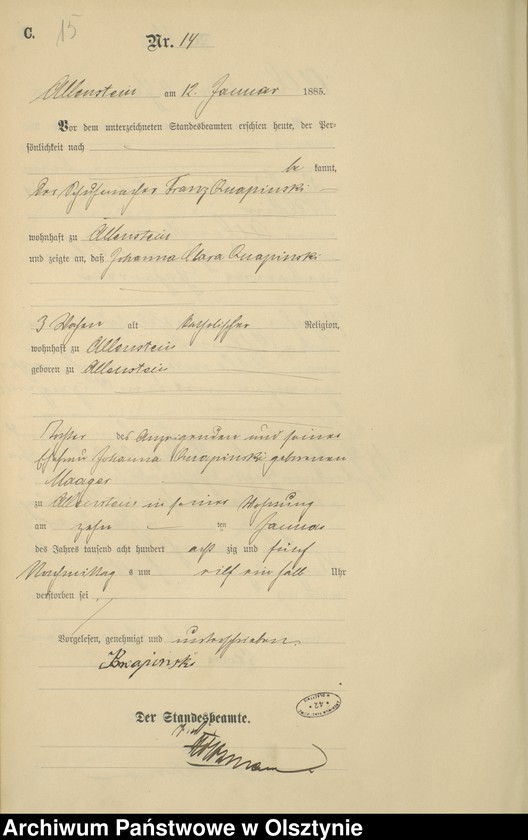 C. 15
Nr. 14
Allenstein am 12 Januar 1885.
Vor dem unterzeichneten Standesbeamten erschien heute, der Per-
sönlichkeit nach
be kannt,
Der Schuhmacher Franz Knapinski
wohnhaft zu Allenstein
und zeigte an, daß Johanna Clara Knapinski
3 Wochen alt katholischer Religion,
wohnhaft zu Allenstein
geboren zu Allenstein
Tochter des Anzeigenden und seiner
Ehefrau Johanna Knapinski geborenen
Maager
zu Allenstein in seiner Wohnung
am zehn ten Januar
des Jahres tausend acht hundert acht zig und fünf
Nachmittag s um elf ein halb Uhr
verstorben sei
Vorgelesen, genehmigt und unterschrieben.
Knapinski
Der Standesbeamte.
Archiwum Państwowe w Olsztynie